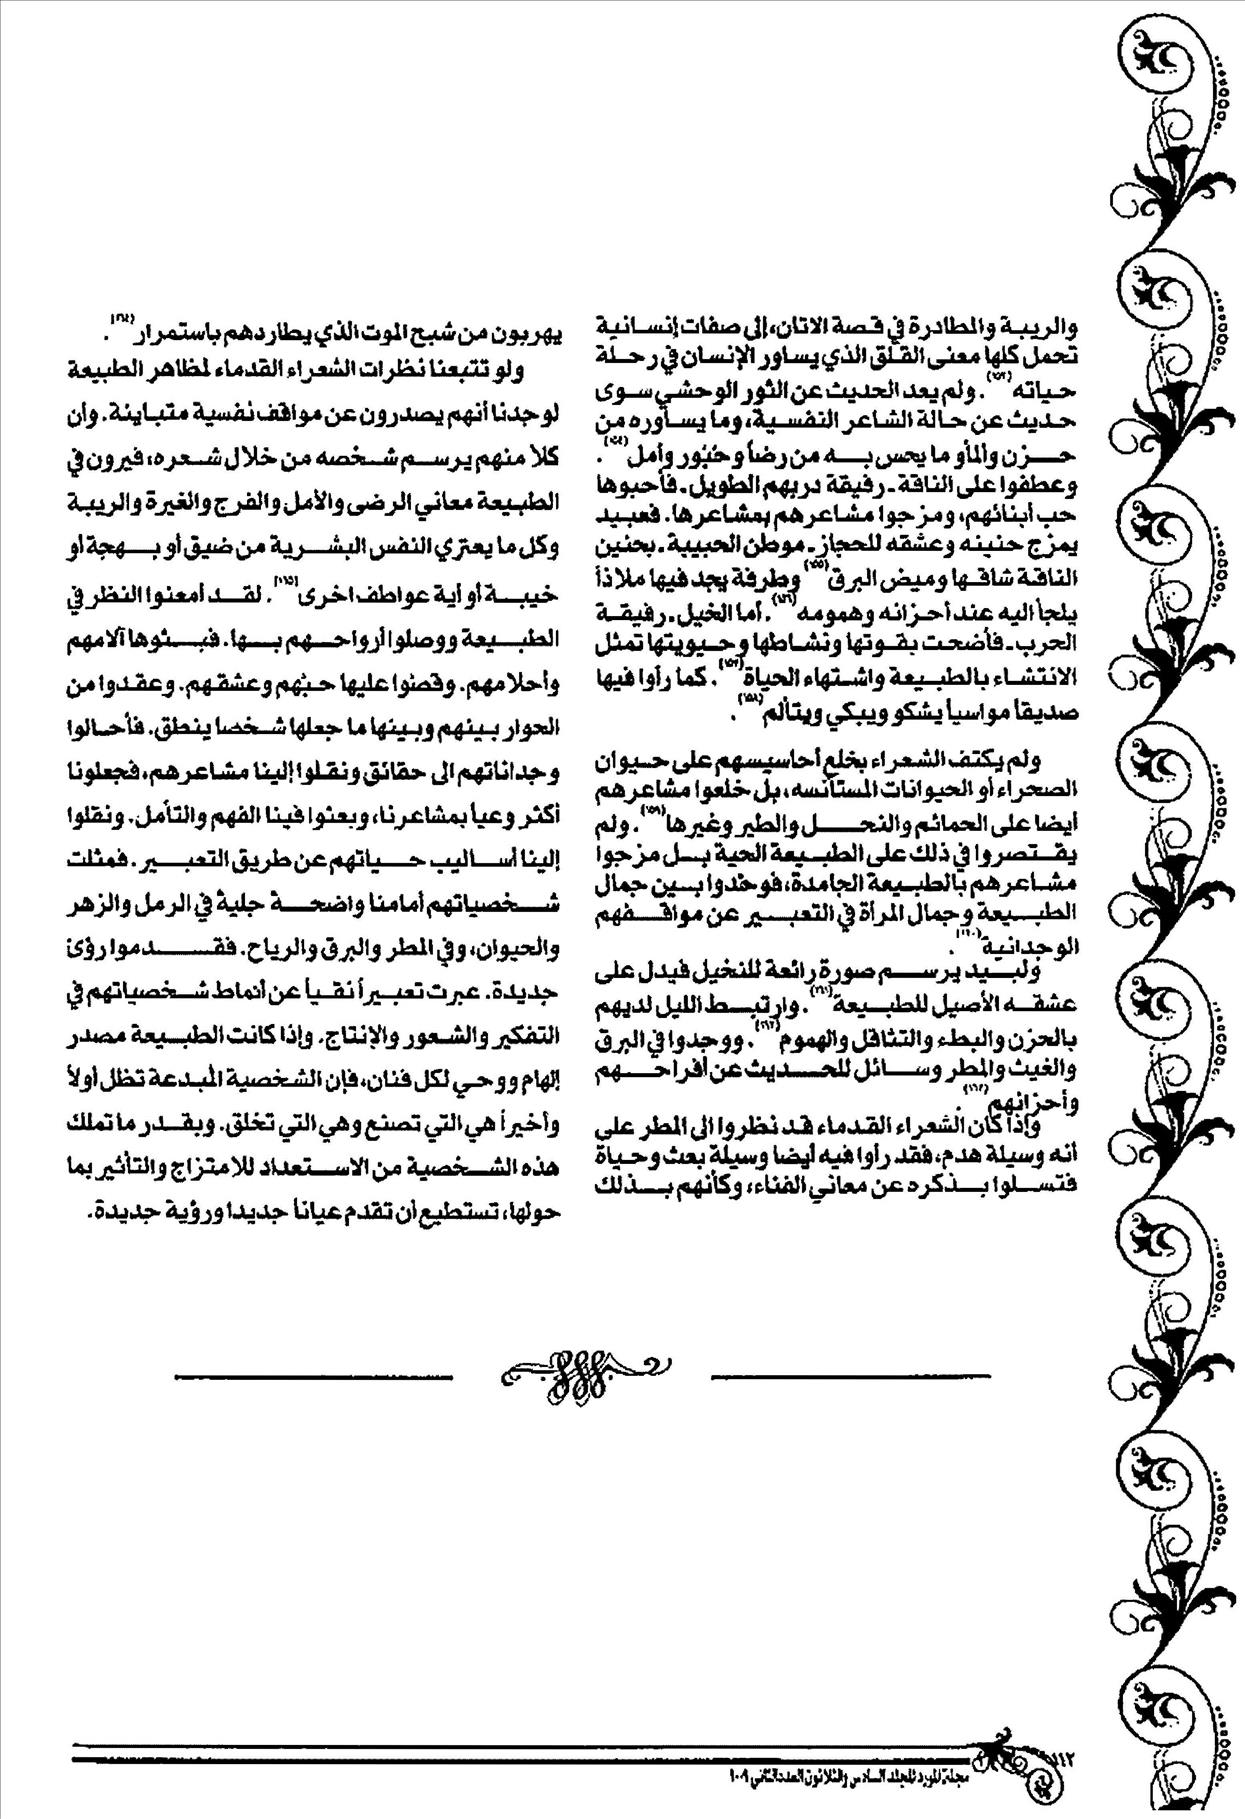 والريبة والمطادرة في قصة الاتان، إلى صفات إنسانية
تحمل كلها معنى القلق الذي يساور الإنسان في رحلة
حياته(١٥٣). ولم يعد الحديث عن الثور الوحشي سوى
حديث عن حالة الشاعر النفسية، وما يساوره من
حزن وألمأو ما يحس به من رضأ وحبُور وأمل(١٥٤).
وعطفوا على الناقة ـ رفيقة دربهم الطويل ـ فأحبوها
حب أبنائهم، ومزجوا مشاعرهم بمشاعرها. فعبيد
يمزج حنينه وعشقه للحجاز ـ موطن الحبيبة ـ بحنين
الناقة شاقها وميض البرق(١٥٥) وطرفة يجد فيها ملاذأ
يلجأ اليه عند أحزانه وهمومه(١٥٦). أما الخيل ـ رفيقة
الحرب ـ فأضحت بقوتها ونشاطها وحيويتها تمثل
الانتشاء بالطبيعة واشتهاء الحياة(١٥٧). كما رأوا فيها
صديقأ مواسيأ يشكو ويبكي ويتألم(١٥٨).
ولم يكتف الشعراء بخلع أحاسيسهم على حيوان
الصحراء أو الحيوانات المستأنسه، بل خلعوا مشاعرهم
أيضا على الحمائم والنحل والطير وغيرها(١٥٩). ولم
يقتصروا في ذلك على الطبيعة الحية بل مزجوا
مشاعرهم بالطبيعة الجامدة، فوحّدوا بين جمال
الطبيعة وجمال المرأة في التعبير عن مواقفهم
الوجدانية(١٦٠).
ولبيد يرسم صورة رائعة للنخيل فيدل على
عشقه الأصيل للطبيعة(١٦١). وارتبط الليل لديهم
بالحزن والبطء والتثاقل والهموم(١٦٢). ووجدوا في البرق
والغيث والمطر وسائل للحديث عن أفراحهم
وأحزانهم(١٦٣).
وإذا كان الشعراء القدماء قد نظروا الى المطر على
أنه وسيلة هدم، فقد رأوا فيه أيضا وسيلة بعث وحياة
فتسلوا بذكره عن معاني الفناء، وكأنهم بذلك
يهربون من شبح الموت الذي يطاردهم باستمرار(١٦٤).
ولو تتبعنا نظرات الشعراء القدماء لمظاهر الطبيعة
لوجدنا أنهم يصدرون عن مواقف نفسية متباينة. وأن
كلا منهم يرسم شخصه من خلال شعره، فيرون في
الطبيعة معاني الرضى والأمل والفرح والغيرة والريبة
وكل ما يعتري النفس البشرية من ضيق أو بهجة أو
خيبة أو أية عواطف اخرى(١٦٥). لقد أمعنوا النظر في
الطبيعة ووصلوا أرواحهم بها. فبثوها آلامهم
وأحلامهم. وقصّوا عليها حبّهم وعشقهم. وعقدوا من
الحوار بينهم وبينها ما جعلها شخصا ينطق. فأحالوا
وجداناتهم الى حقائق ونقلوا إلينا مشاعرهم، فجعلونا
أكثر وعيأ بمشاعرنا، وبعثوا فينا الفهم والتأمل. ونقلوا
إلينا أساليب حياتهم عن طريق التعبير. فمثلت
شخصياتهم أمامنا واضحة جلية في الرمل والزهر
والحيوان، وفي المطر والبرق والرياح. فقدموا رؤىً
جديدة. عبرت تعبيرأ نقيأ عن أنماط شخصياتهم في
التفكير والشعور والإنتاج. وإذا كانت الطبيعة مصدر
إلهام ووحي لكل فنان، فإن الشخصية المُبدعة تظل أولأ
وأخيرأ هي التي تصنع وهي التي تخلق. وبقدر ما تملك
هذه الشخصية من الاستعداد للامتزاج والتأثير بما
حولها، تستطيع أن تقدم عيانأ جديدا ورؤية جديدة.
١١٢
مجلة المورد المجلد السادس والثلاثون العدد الثاني ٢٠٠٩